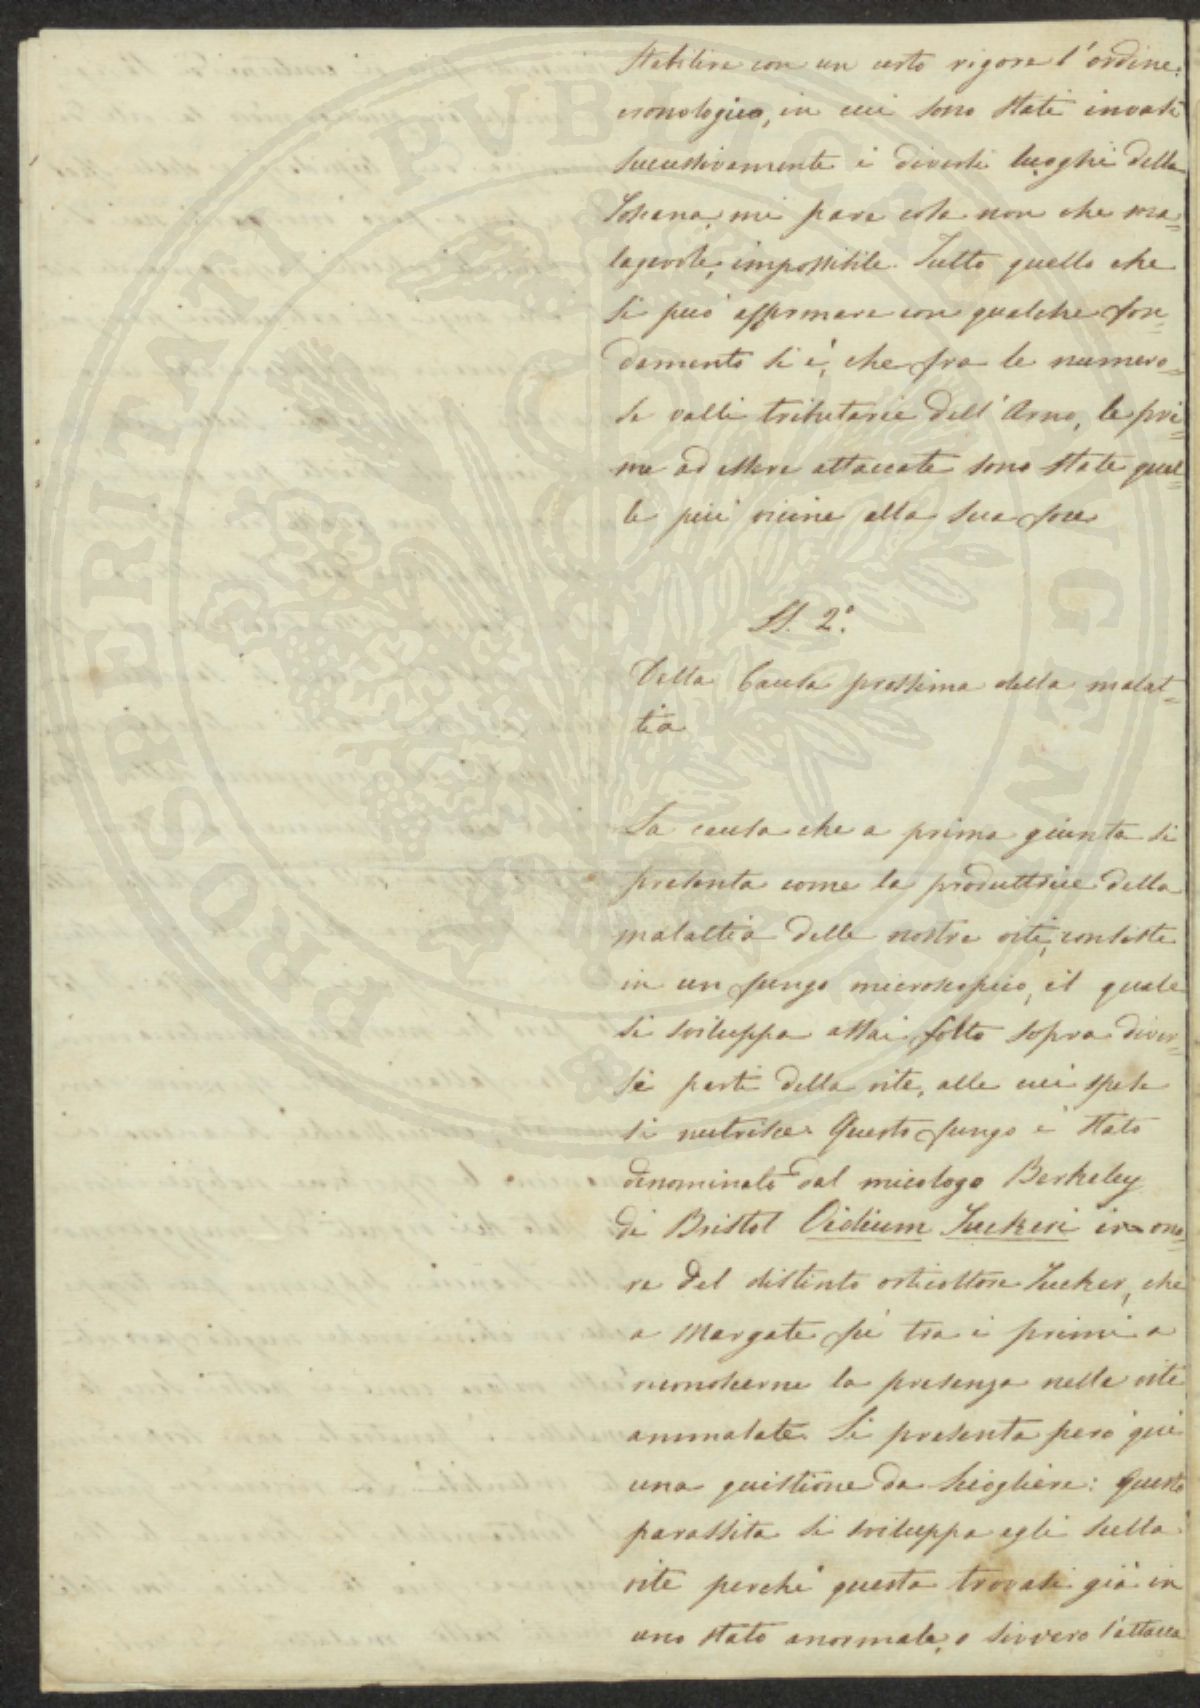 stabilire con un certo rigore l'ordine
cronologico, in cui sono stati invasi
successivamente i diversi luoghi della
Toscana, mi pare cosa non che ma=
lagevole, impossibile. Tutto quello che
si può affermare con qualche fon=
damento si è, che fra le numero=
se valli tributarie dell'Arno, le pri=
me ad essere attaccate sono state quel=
le più vicine alla sua foce
§. 2.°
Della Causa prossima della malat=
tia
La causa che a prima giunta si
presenta come la produttrice della
malattia delle nostre viti, consiste
in un fungo microscopico, il quale
si sviluppa assai folto sopra diver=
se parti della vite, alle cui spese
si nutrisce. Questo fungo è stato
denominato dal micologo Berkeley
di Bristol Oidium Tuckeri in ono=
re del distinto orticoltore Tucker, che
a Margate fu tra i primi a
riconoscerne la presenza nelle viti
ammalate. Si presenta però qui
una quistione da sciogliere: Questo
parassita si sviluppa egli sulla
vite perchè questa trovasi già in
uno stato anormale, o sivvero l'attacca
PROSPERITATI PUBLICAE